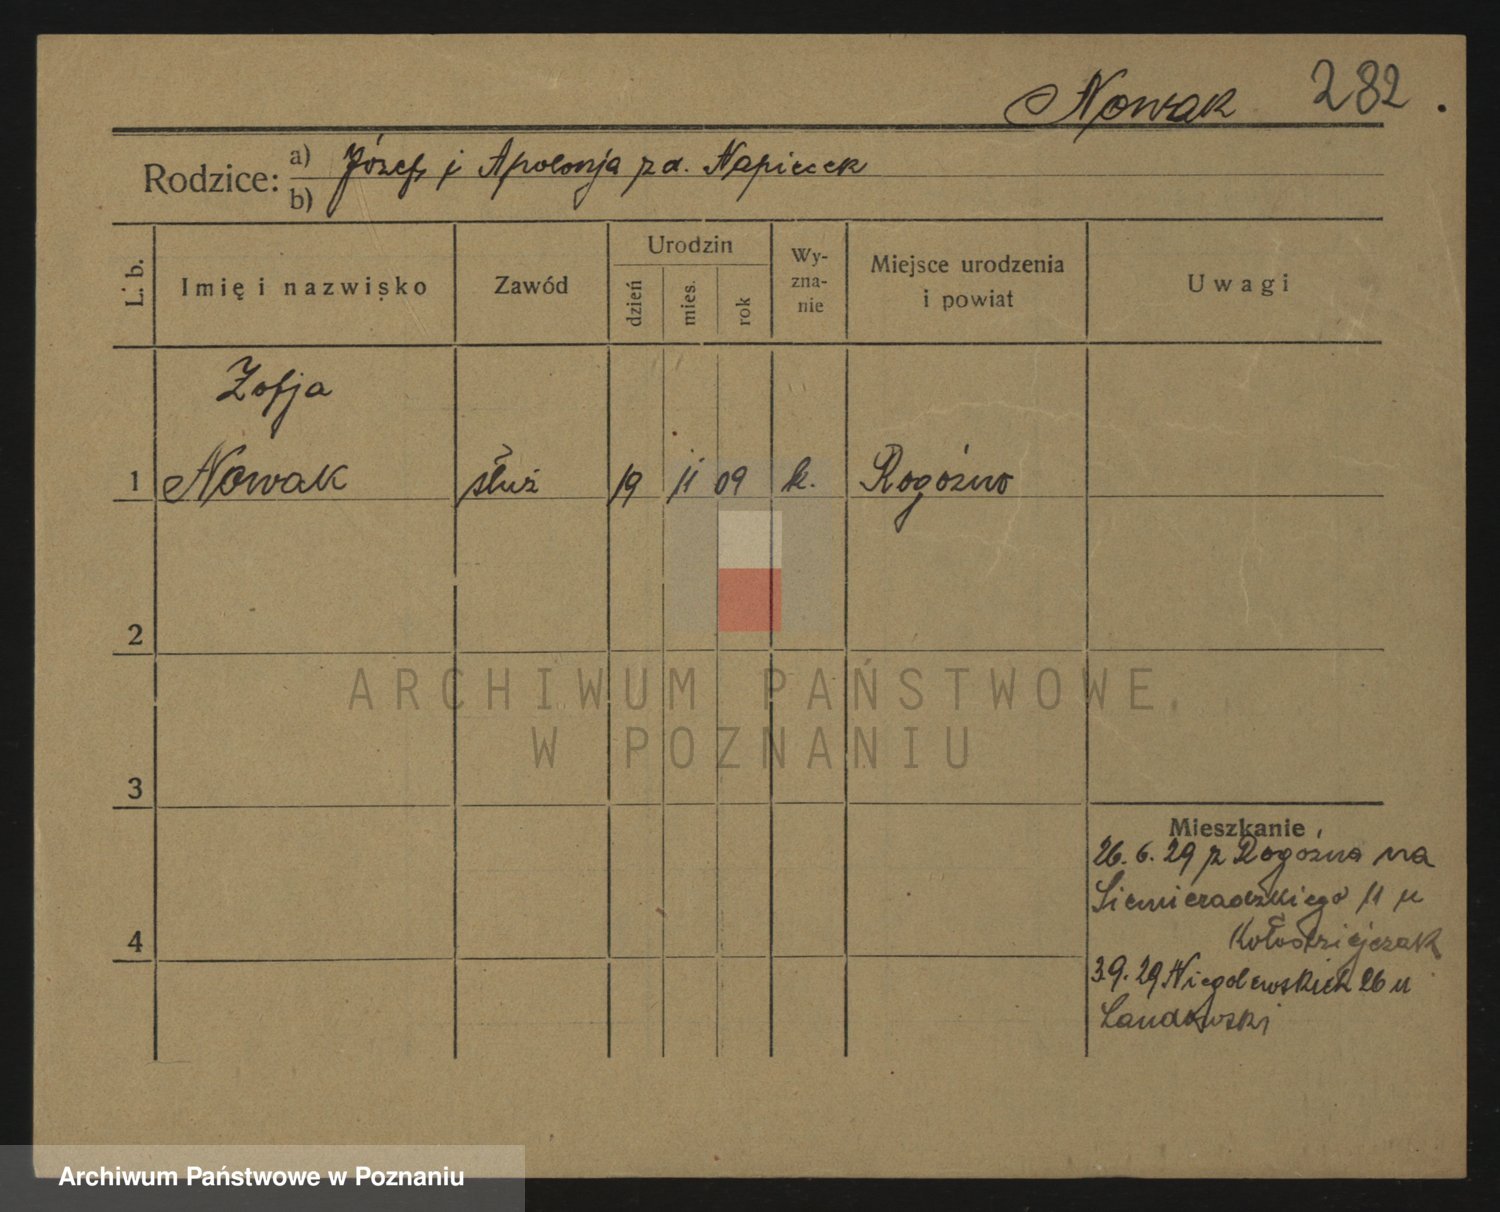 Nowak 282.
Rodzice: a) Józef i Apolonja z d. Napiecek
b)
L. b.
Imię i nazwisko
Zawód
Urodzin
dzień
mies.
rok
Wy-
zna-
nie
Miejsce urodzenia
i powiat
Uwagi
Zofja
1 Nowak służ 19 11 09 k. Rogoźno
2
ARCHIWUM PAŃSTWOWE
W POZNANIU
3
Mieszkanie
26. 6. 29 z Rogoźna na
Siemieradzkiego 11 u
Kołodziejczak
4
3.9.29 Niegolewskich 26 u
Landowski
Archiwum Państwowe w Poznaniu